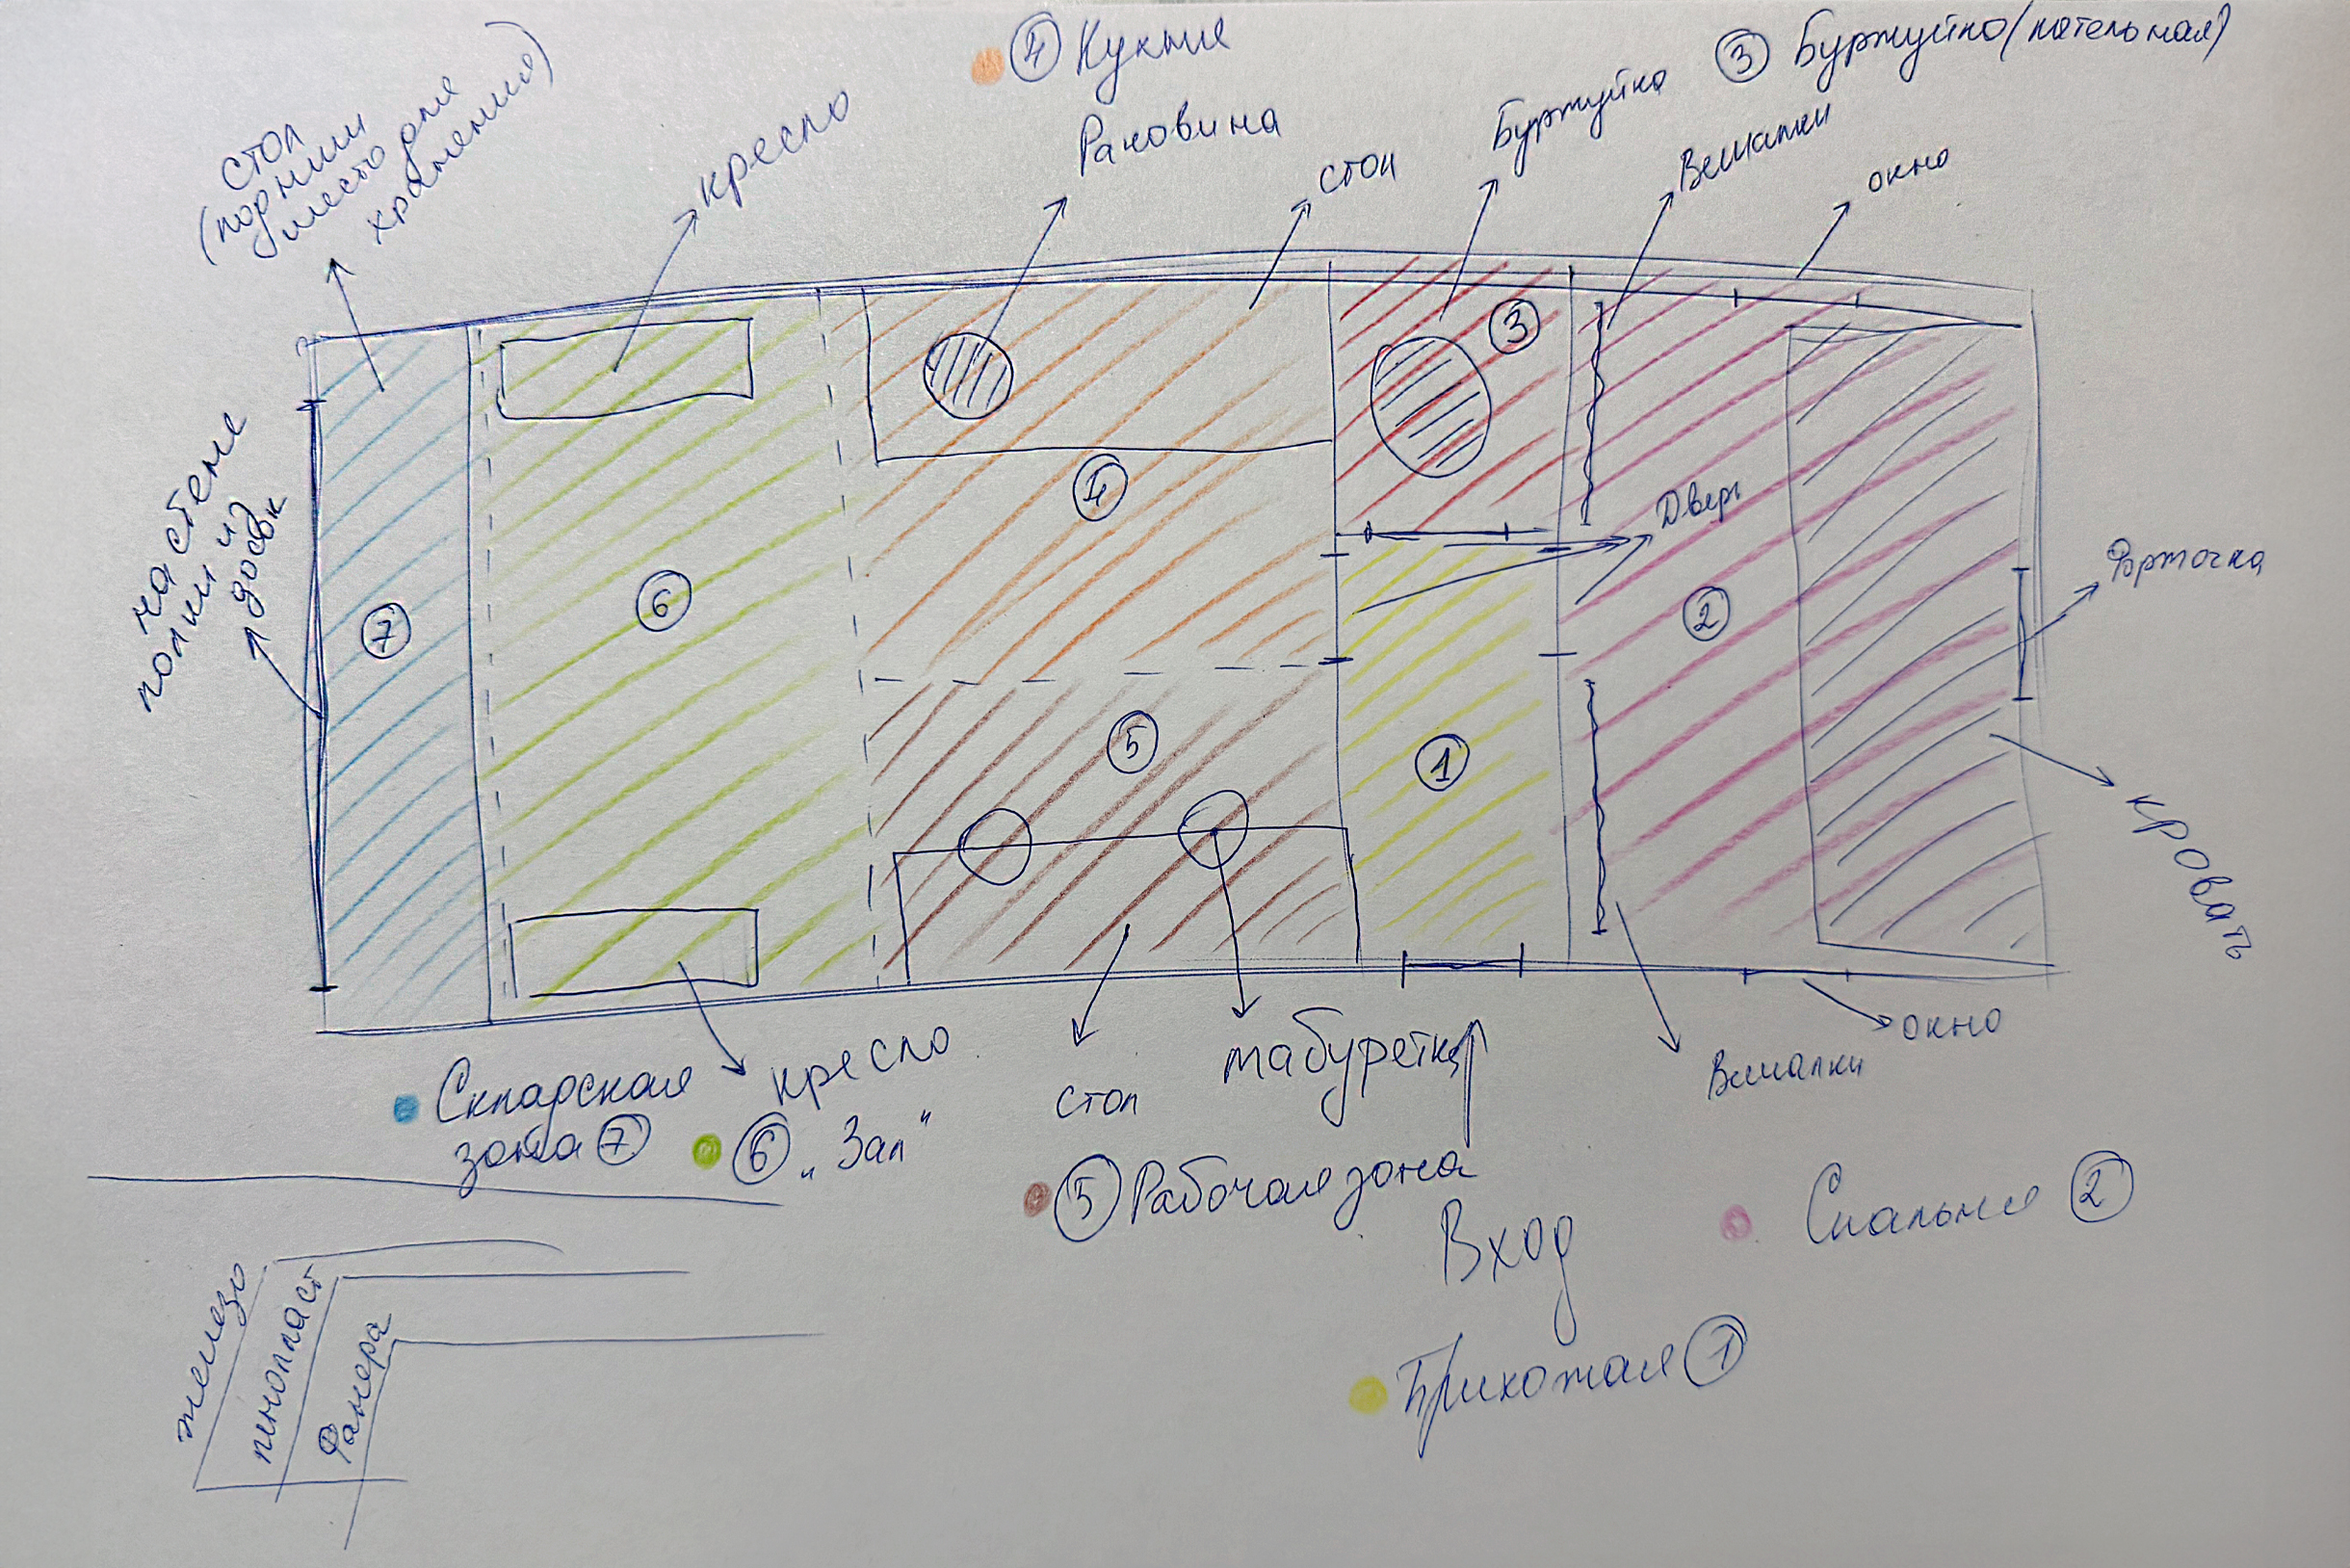 ④ Кухня
③ Буржуйка (котельная)
Раковина
стол
Буржуйка
Вешалки
окно
кресло
стол
(под ним
место для
хранения)
на стене
полки из
досок
③
④
Дверь
⑥
⑦
②
Форточка
⑤
①
кровать
кресло
стол
табуретка
Вешалки
окно
Склярская
зона ⑦
⑥ „Зал"
⑤ Рабочая зона
Вход
Спальня ②
Прихожая ①
железо
пенопласт
Фанера